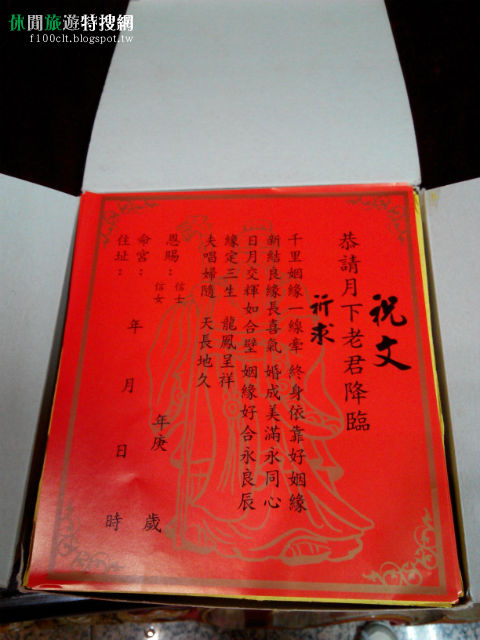 休閒旅遊特搜網
f100clt.blogspot.tw
祝文
恭請月下老君降臨
祈求
千里姻緣一線牽 終身依靠好姻緣
新結良緣長喜氣 婚成美滿永同心
日月交輝如合璧 姻緣好合永良辰
緣定三生 龍鳳呈祥
夫唱婦隨 天長地久
恩賜：信士 信女 年庚 歲
命宮： 年 月 日 時
住址：